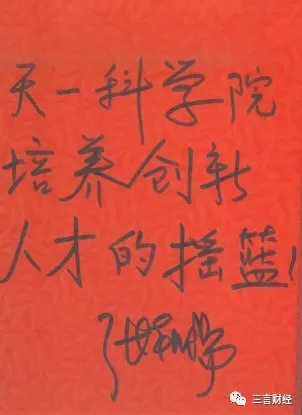 天一科学院
培养创新
人才的摇篮!
三言财经